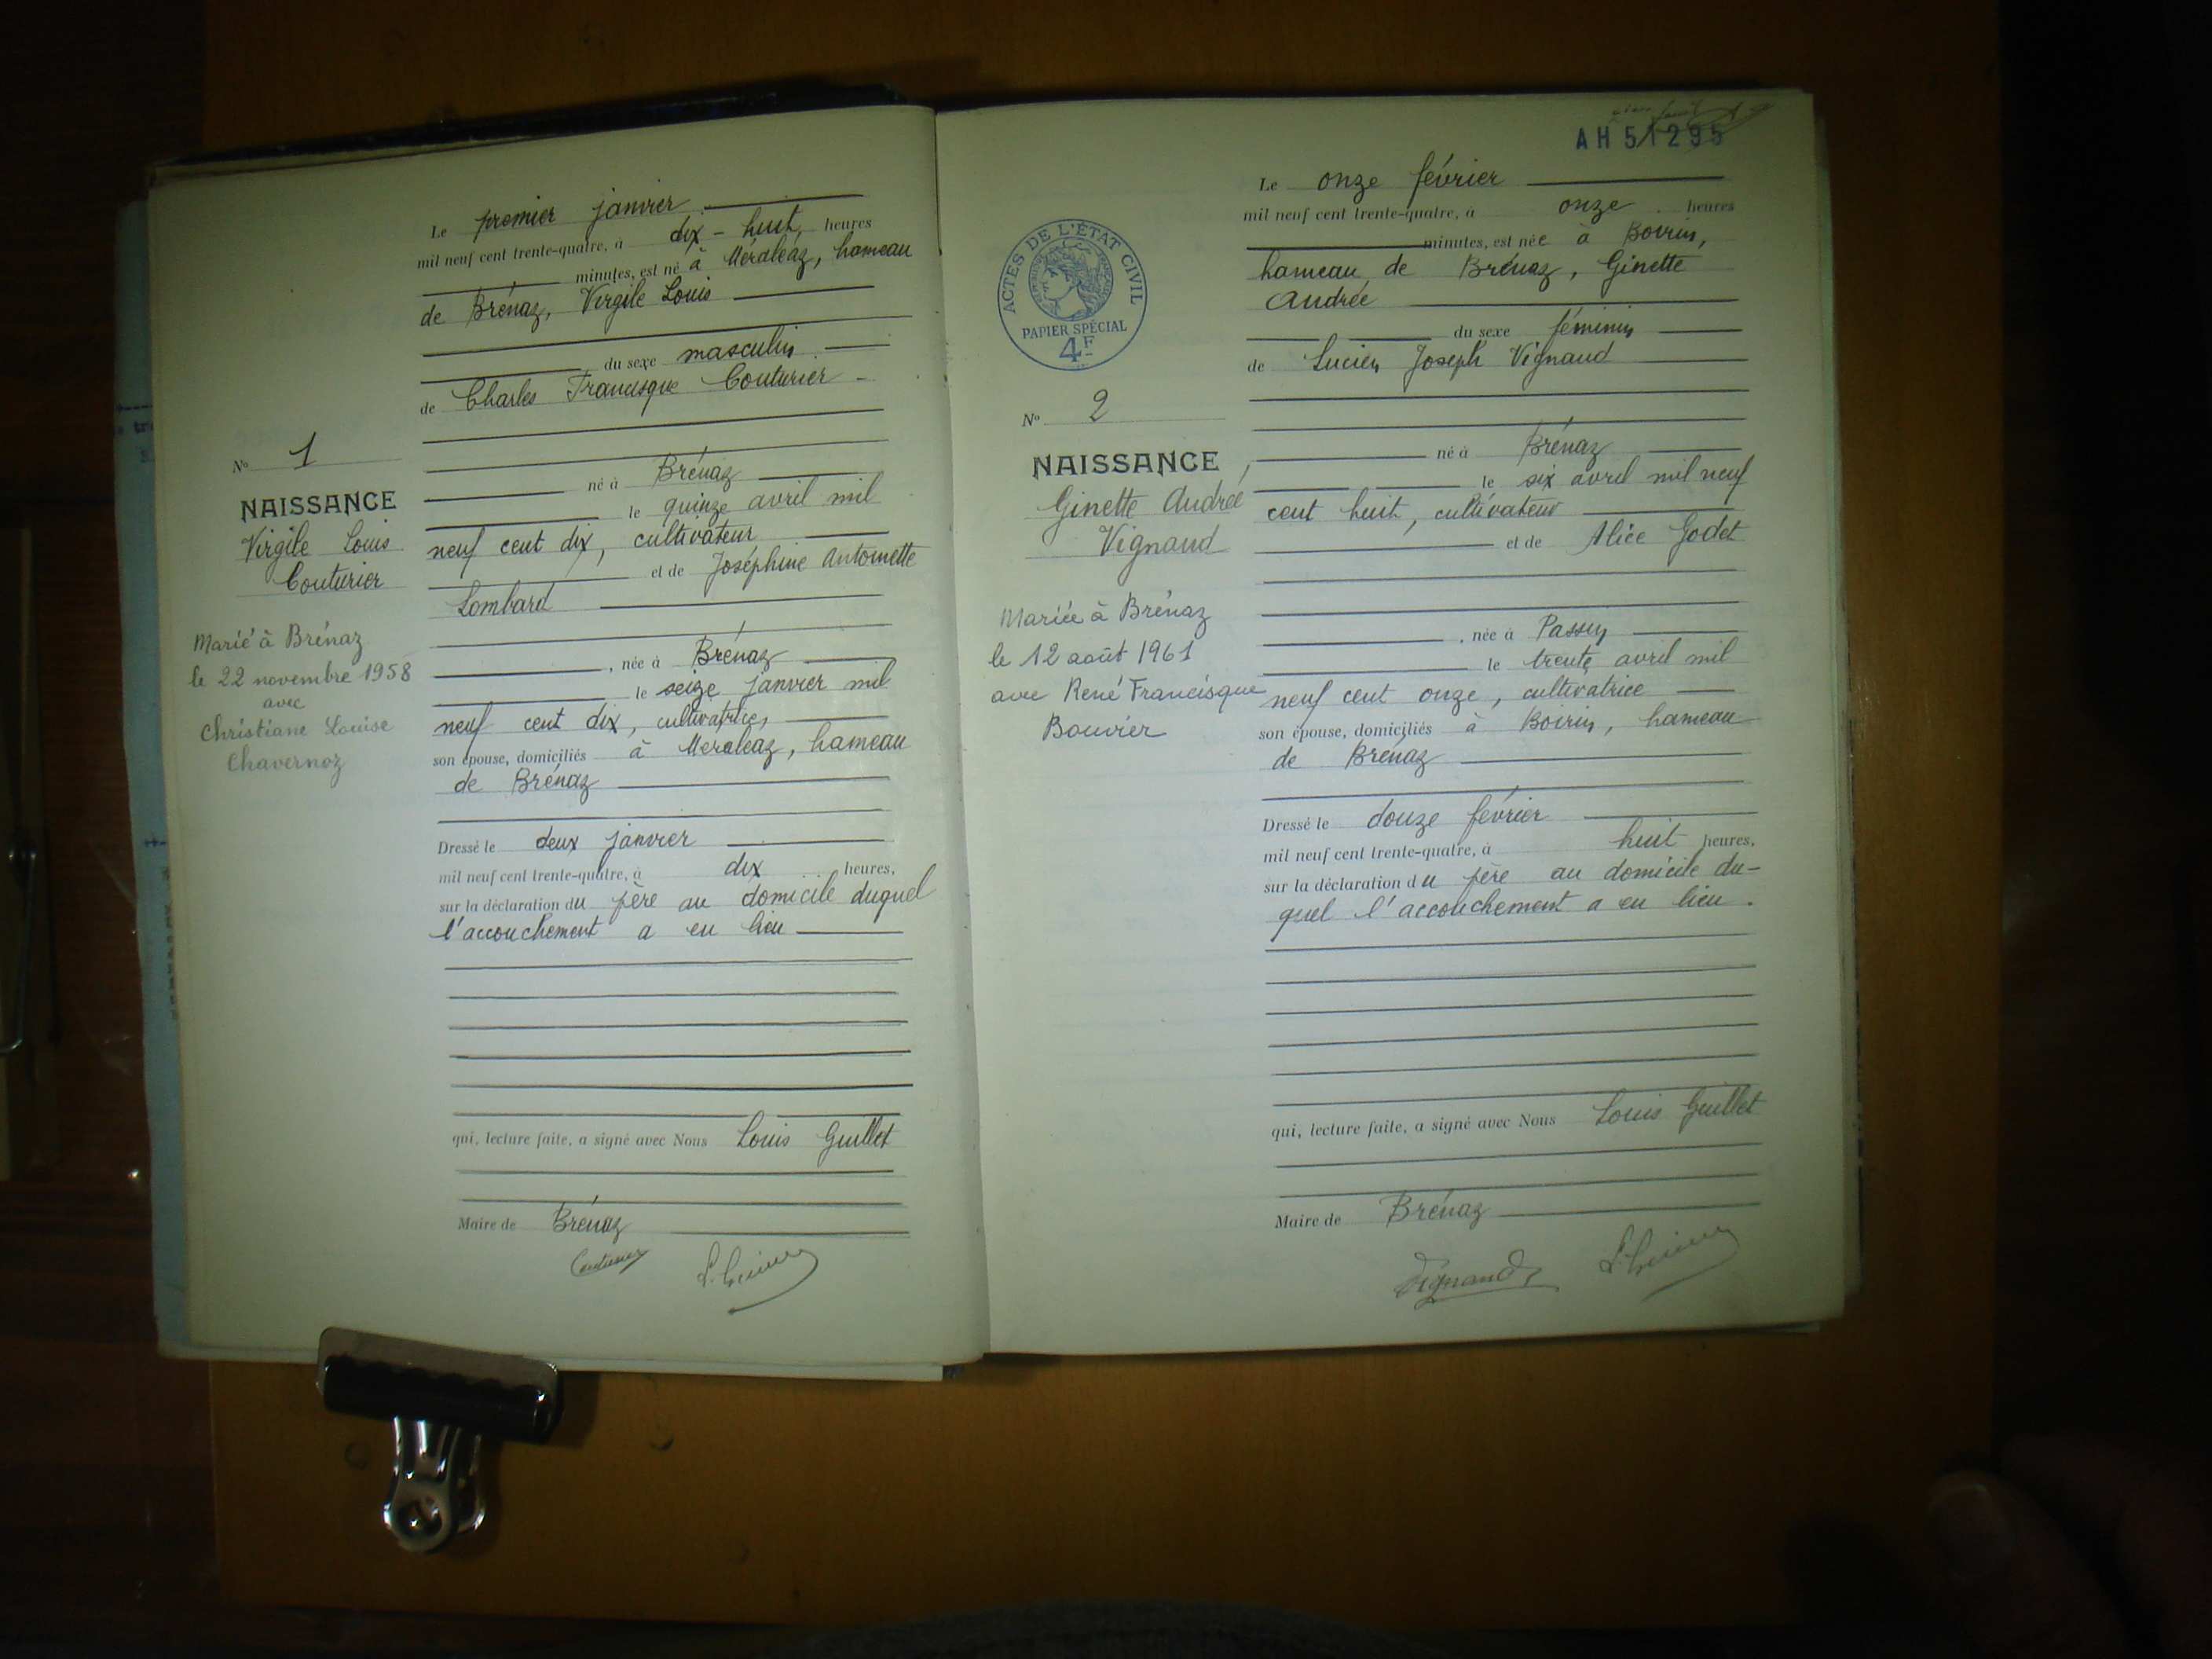 Le premier janvier
mil neuf cent trente-quatre, à dix-huit heures
minutes, est né à Méraléaz, hameau
de Brénaz, Virgile Louis
du sexe masculin
de Charles Francisque Couturier
né à Brénaz
le quinze avril mil
neuf cent dix, cultivateur
et de Joséphine Antoinette
Lombard
, née à Brénaz
le seize janvier mil
neuf cent dix, cultivatrice,
son épouse, domiciliés à Meraleaz, hameau
de Brénaz
Dressé le deux janvier
mil neuf cent trente-quatre, à dix heures,
sur la déclaration du père au domicile duquel
l'accouchement a eu lieu
qui, lecture faite, a signé avec Nous Louis Guillet
Maire de Brénaz
Couturier
No 1
NAISSANCE
Virgile Louis
Couturier
Marié à Brénaz
le 22 novembre 1958
avec
Christiane Louise
Chavernoz
AH 51295
ACTES DE L'ÉTAT CIVIL
PAPIER SPÉCIAL
4F
No 2
NAISSANCE
Ginette Andrée
Vignaud
Mariée à Brénaz
le 12 août 1961
avec René Francisque
Bouvier
Le onze février
mil neuf cent trente-quatre, à onze heures
minutes, est née à Boirin,
hameau de Brénaz, Ginette
Andrée
du sexe féminin
de Lucien Joseph Vignaud
né à Brénaz
le six avril mil neuf
cent huit, cultivateur
et de Alice Godet
, née à Passin
le trente avril mil
neuf cent onze, cultivatrice
son épouse, domiciliés à Boirin, hameau
de Brénaz
Dressé le douze février
mil neuf cent trente-quatre, à huit heures,
sur la déclaration du père au domicile du-
quel l'accouchement a eu lieu.
qui, lecture faite, a signé avec Nous Louis Guillet
Maire de Brénaz
Vignaud